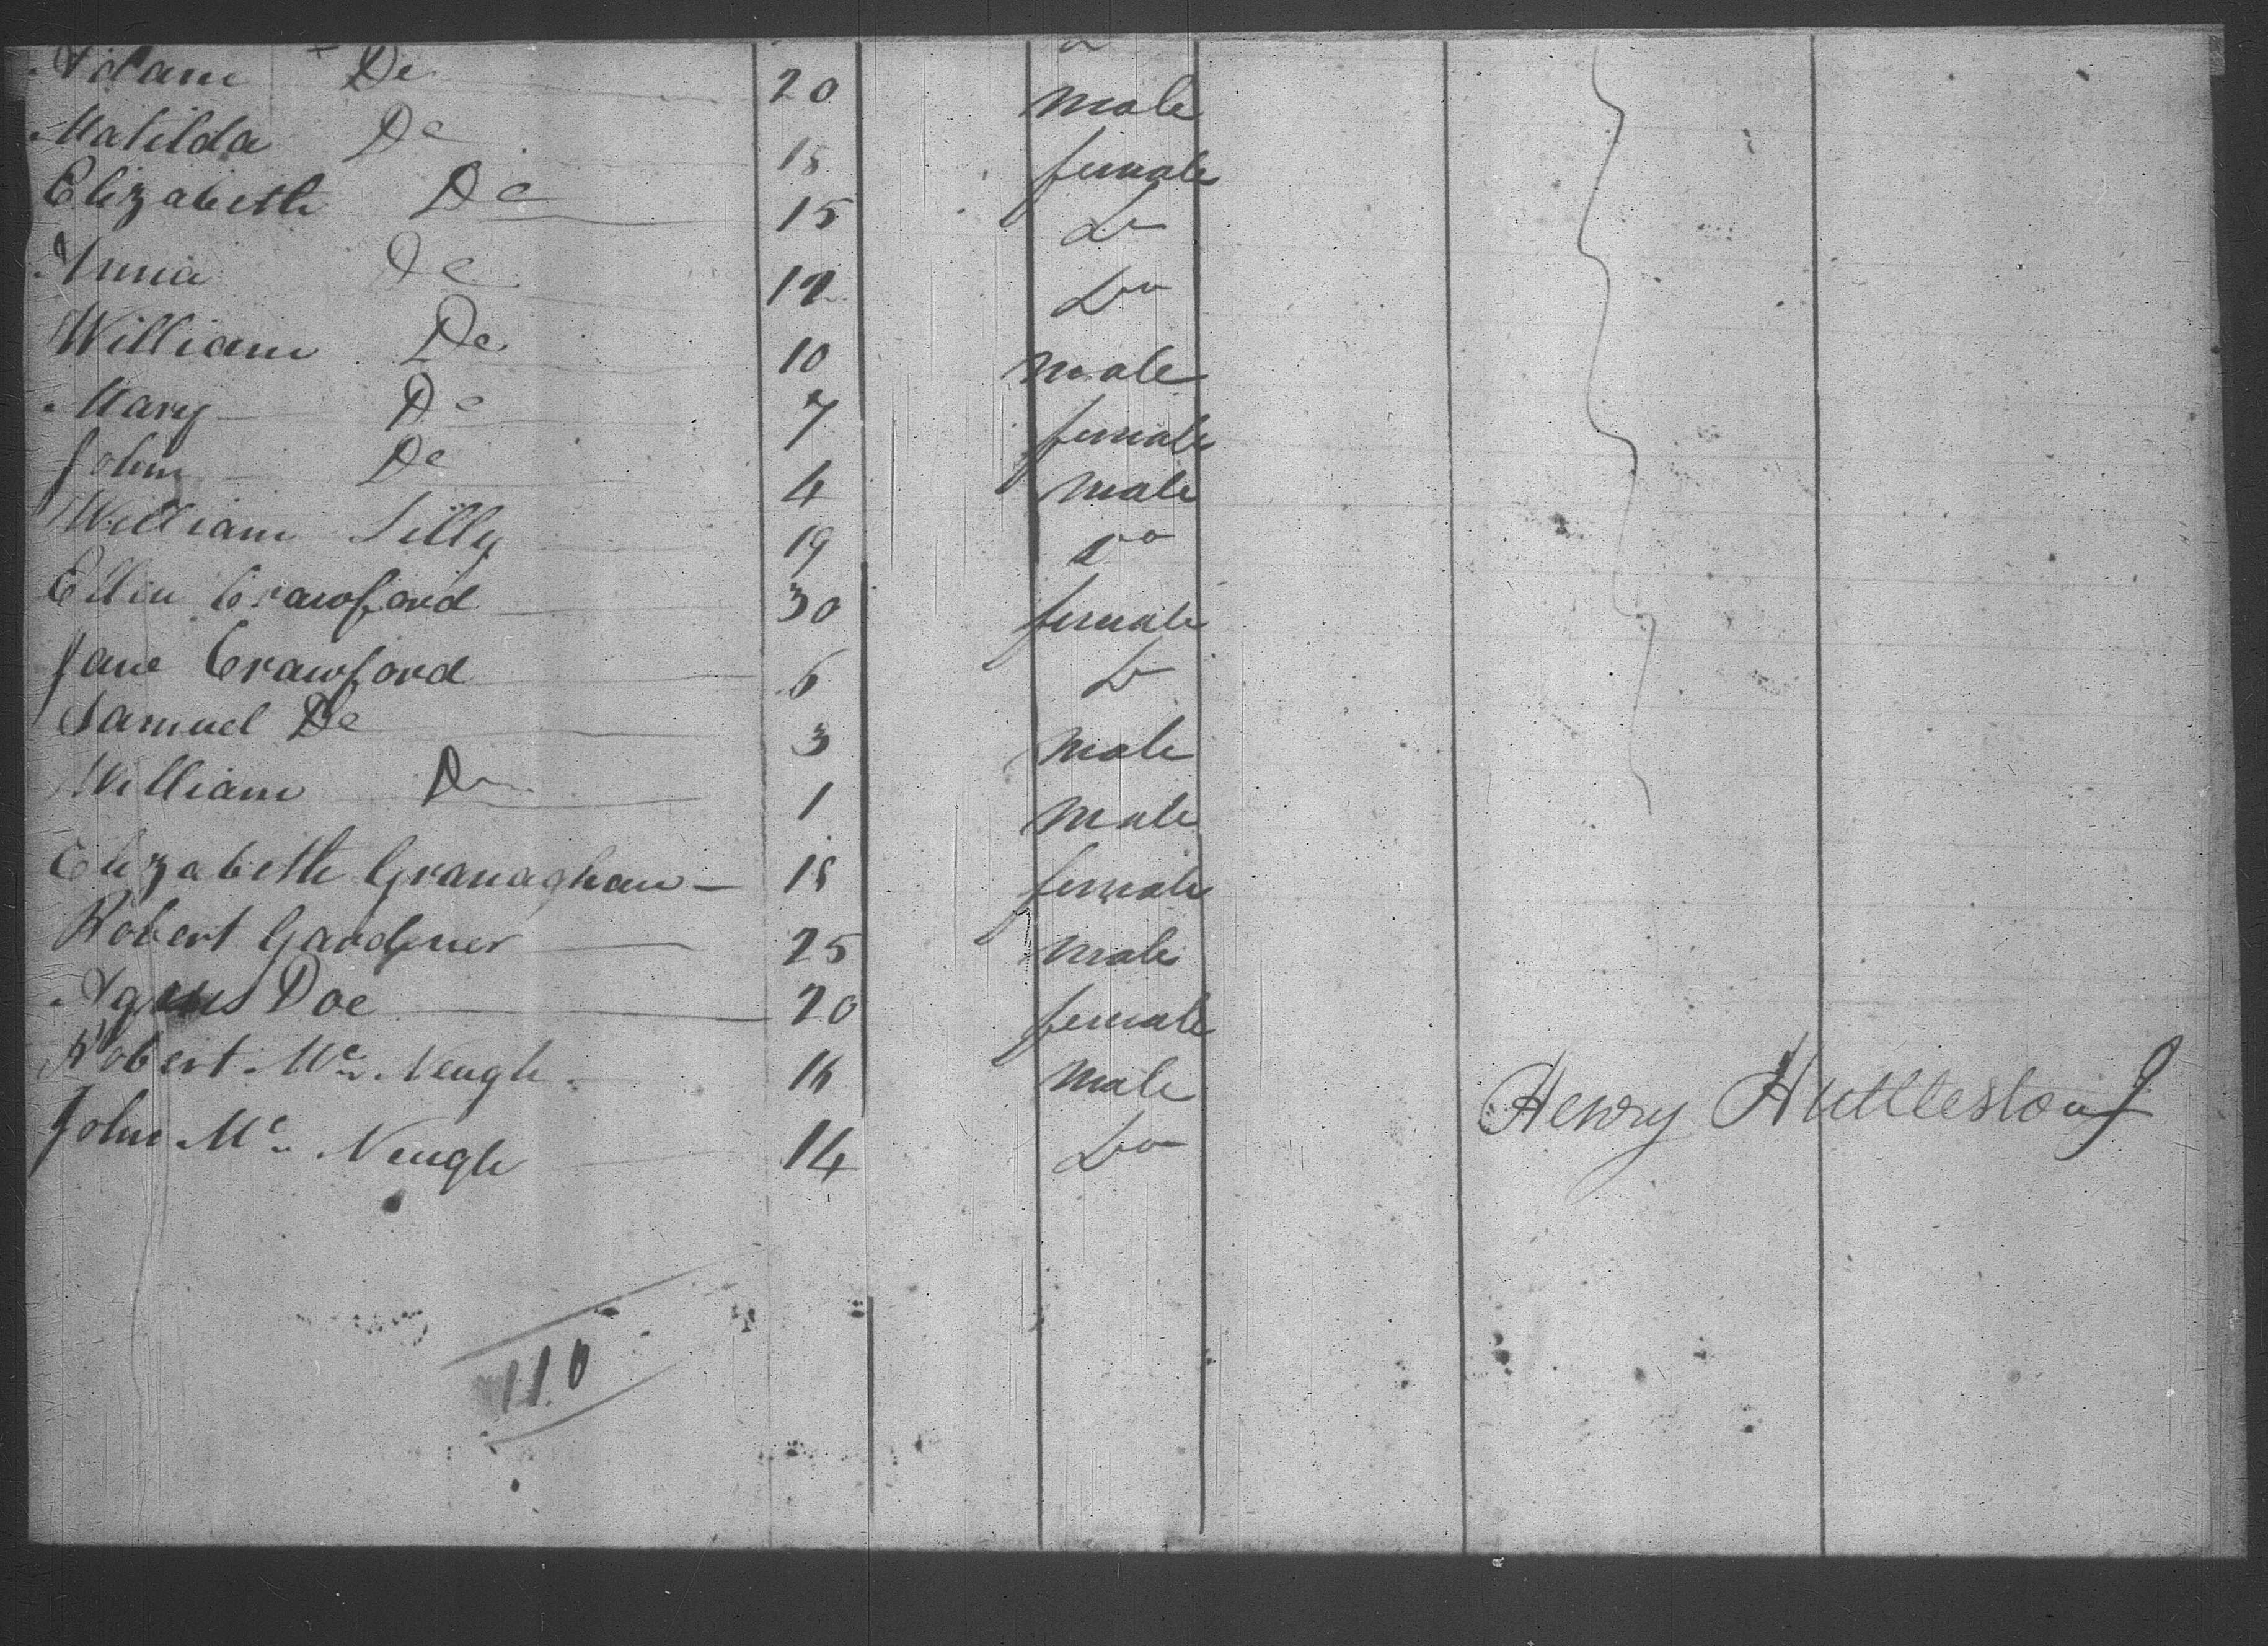 Adam Do 20 male
Matilda Do 18 female
Elizabeth Do 15 Do
Anna Do 12 Do
William Do 10 male
Mary Do 7 female
John Do 4 male
William Lilly 19 Do
Ellen Crawford 30 female
Jane Crawford 6 Do
Samuel Do 3 male
William Do 1 male
Elizabeth Granaghan 18 female
Robert Gardner 25 male
Agnes Doe 20 female
Robert Mc Neugh 16 male
John Mc Neugh 14 Do
Henry Huttleston
110